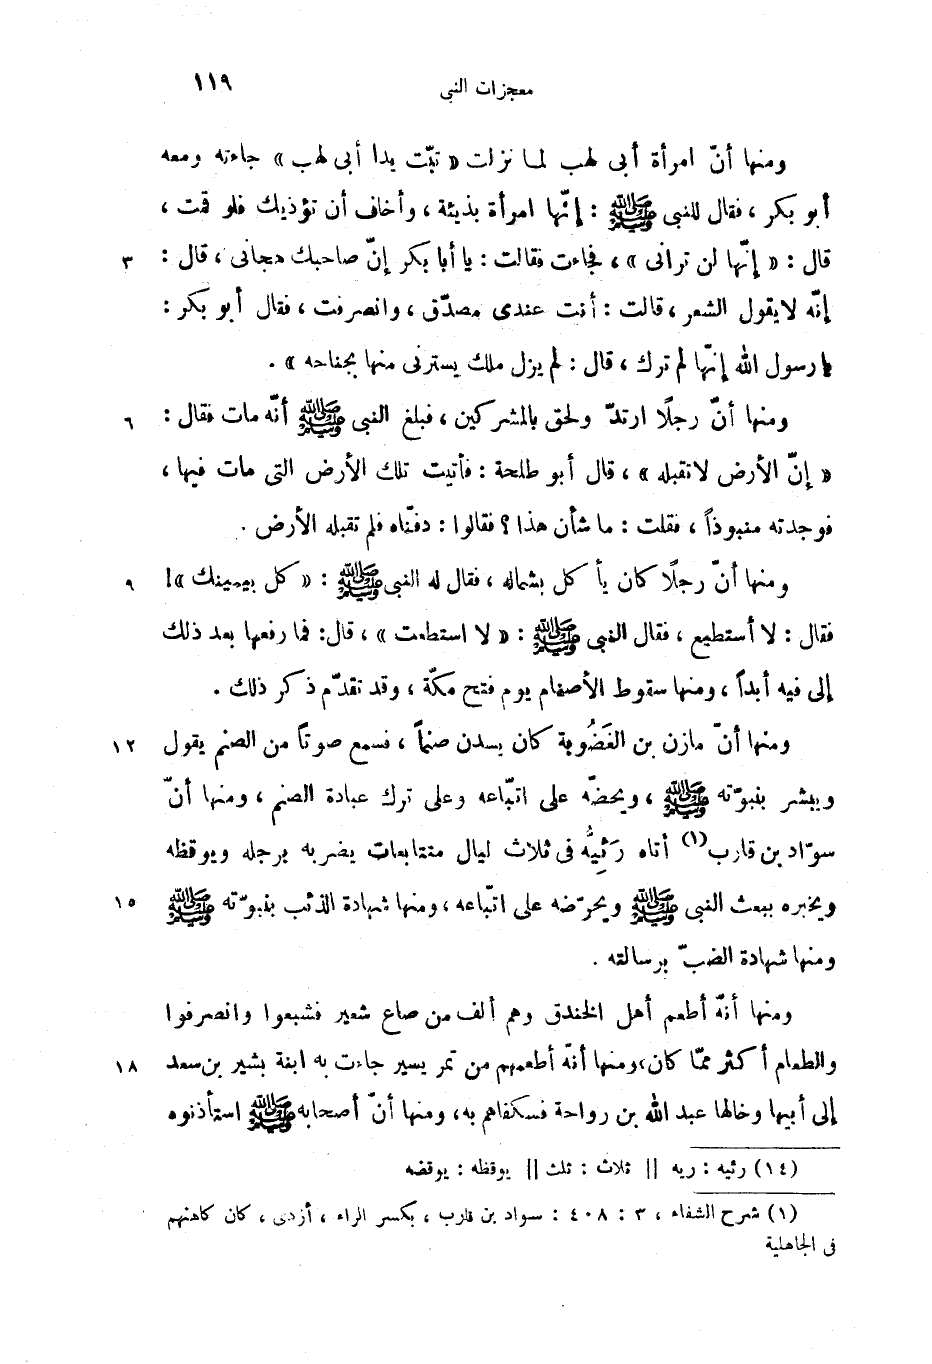 معجزات النبى ١١٩
ومنها أنّ امرأة أبى لهب لما نزلت « تبّت يدا أبى لهب » جاءته ومعه
أبو بكر ، فقال للنبى ﷺ : إنّها امرأة بذيئة ، وأخاف أن تؤذيك فلو قمت ،
قال : « إنّها لن ترانى » ، فجاءت فقالت : يا أبا بكر إنّ صاحبك هجانى ، قال : ٣
إنّه لايقول الشعر ، قالت : أنت عندى مصدّق ، وانصرفت ، فقال أبو بكر :
يا رسول الله إنّها لم ترك ، قال : لم يزل ملك يسترنى منها بجناحه » .
ومنها أنّ رجلًا ارتدّ ولحق بالمشركين ، فبلغ النبى ﷺ أنّه مات فقال : ٦
« إنّ الأرض لاتقبله » ، قال أبو طلحة : فأتيت تلك الأرض التى مات فيها ،
فوجدته منبوذاً ، فقلت : ما شأن هذا ؟ فقالوا : دفنّاه فلم تقبله الأرض .
ومنها أنّ رجلًا كان يأكل بشماله ، فقال له النبى ﷺ : « كل بيمينك »! ٩
فقال : لا أستطيع ، فقال النبى ﷺ : « لا استطعت » ، قال: فما رفعها بعد ذلك
إلى فيه أبداً ، ومنها سقوط الأصنام يوم فتح مكّة ، وقد تقدّم ذكر ذلك .
ومنها أنّ مازن بن الغَضُوبة كان يسدن صنماً ، فسمع صوتاً من الصنم يقول ١٢
ويبشر بنبوّته ﷺ ، ويحضّه على اتّباعه وعلى ترك عبادة الصنم ، ومنها أنّ
سوّاد بن قارب(١) أتاه رَئِيُّه فى ثلاث ليال متتابعات يضربه برجله ويوقظه
ويخبره ببعث النبى ﷺ ويحرّضه على اتّباعه ، ومنها شهادة الذئب بنبوّته ﷺ ١٥
ومنها شهادة الضبّ برسالته .
ومنها أنّه أطعم أهل الخندق وهم ألف من صاع شعير فشبعوا وانصرفوا
والطعام أكثر ممّا كان، ومنها أنّه أطعمهم من تمر يسير جاءت به ابنة بشير بن سعد ١٨
إلى أبيها وخالها عبد الله بن رواحة فسكفاهم به، ومنها أنّ أصحابه ﷺ استأذنوه
(١٤) رئيه : ريه || ثلاث : ثلث || يوقظه : يوقضه
(١) شرح الشفاء ، ٣ : ٤٠٨ : سواد بن قارب ، بكسر الراء ، أزدى ، كان كاهنهم
فى الجاهلية